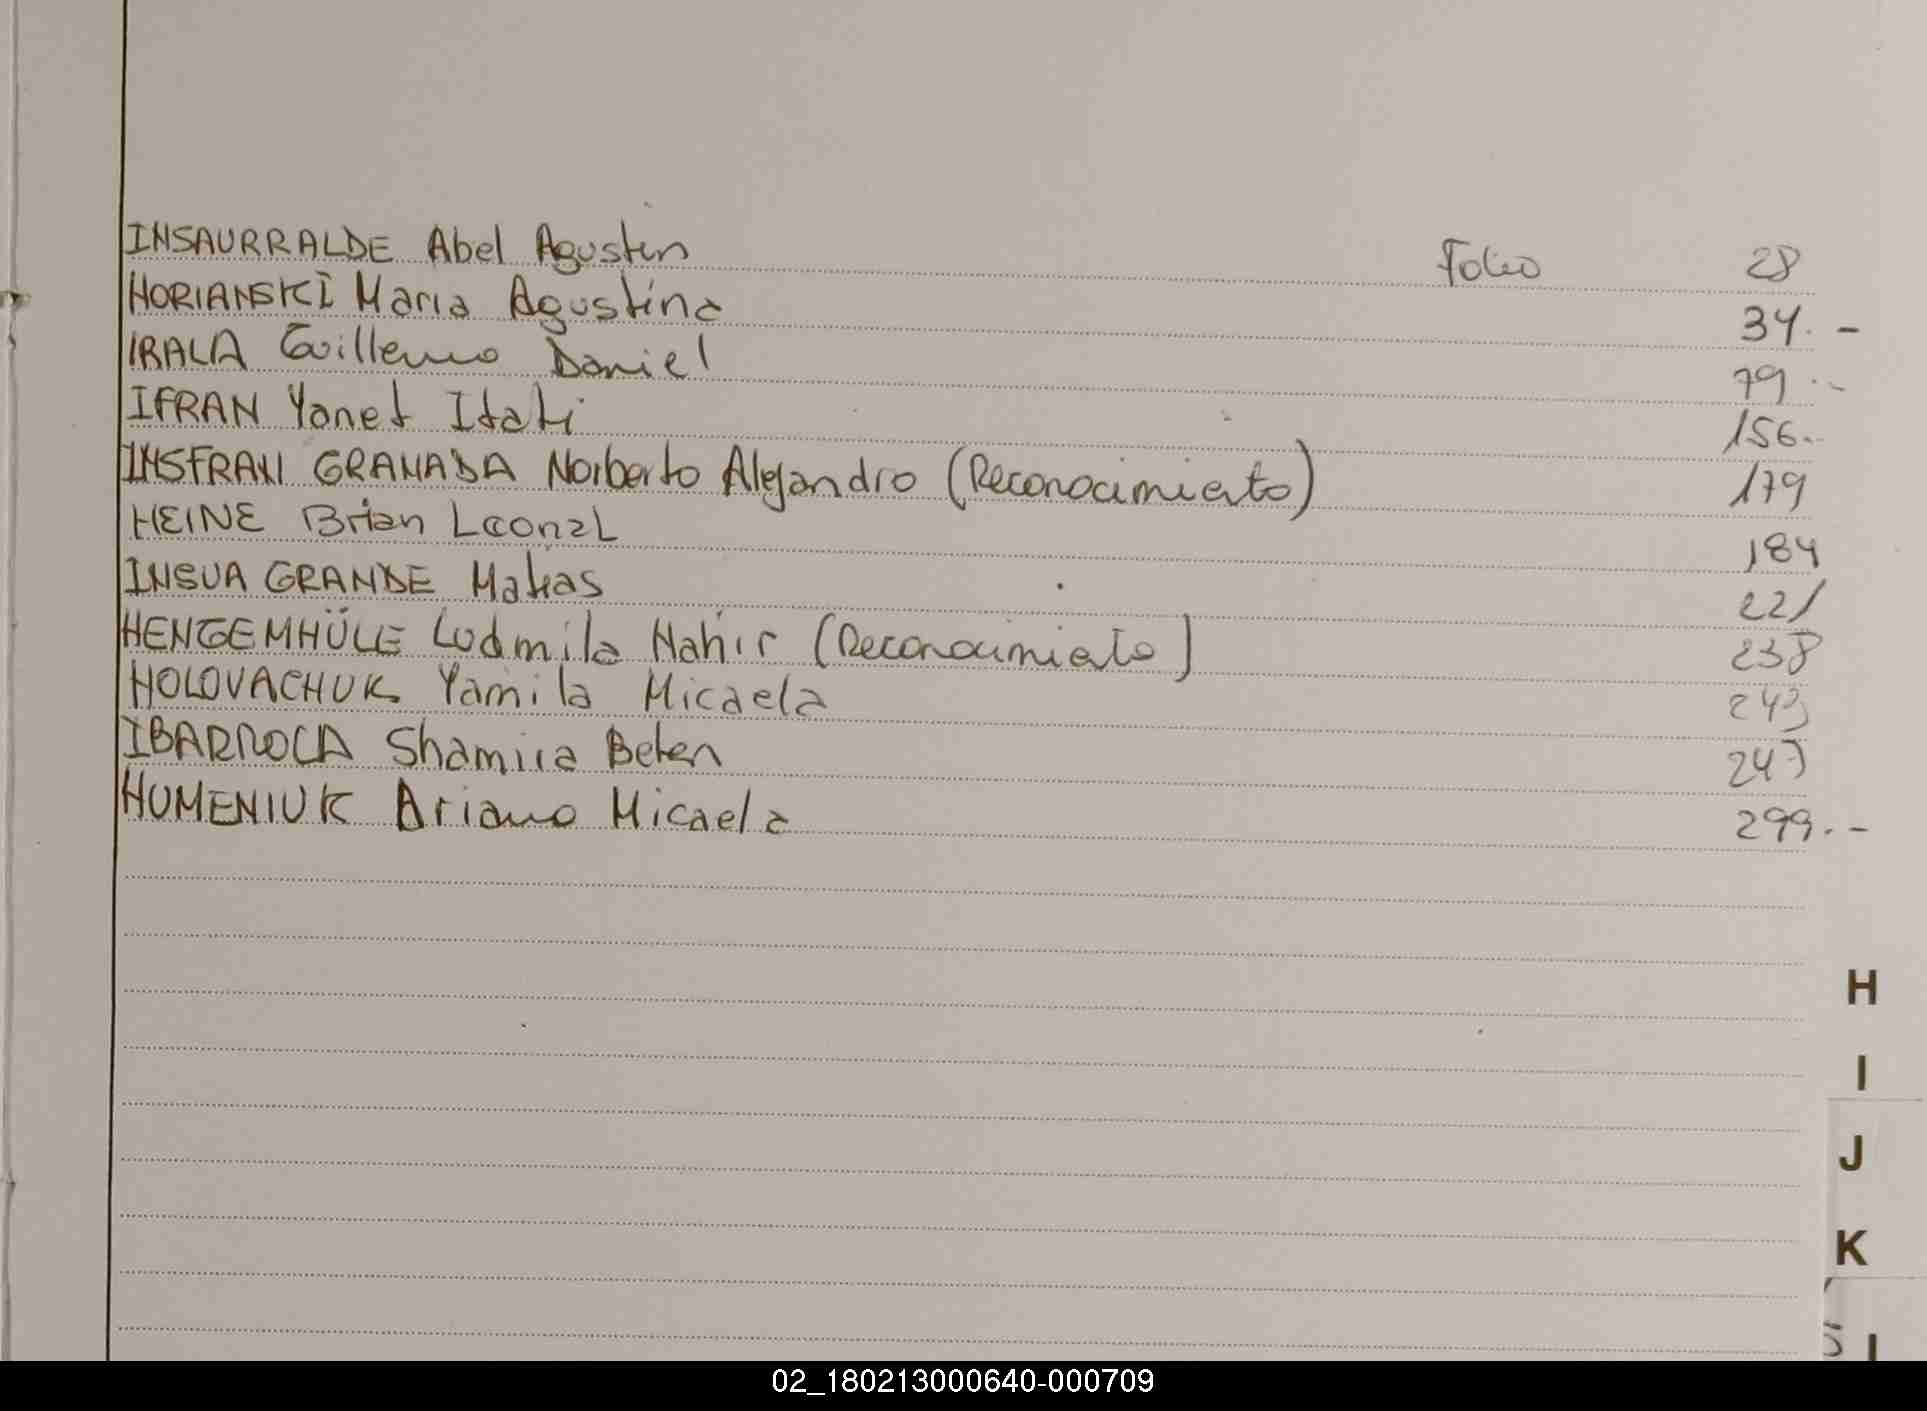 INSAURRALDE Abel Agustin Folio 28
HORIANSKI Maria Agustina 34. -
IRALA Guillermo Daniel 79.-
IFRAN Yanet Itati 156.-
INSFRAN GRANADA Norberto Alejandro (Reconocimiento) 179
HEINE Brian Leonel 184
INSUA GRANDE Matias 221
HENGEMHÜLE Ludmila Nahir (Reconocimiento) 238
HOLOVACHUK Yamila Micaela 243
IBARROLA Shamira Belen 247
HUMENIUK Ariana Micaela 299.-
H
I
J
K
02_180213000640-000709